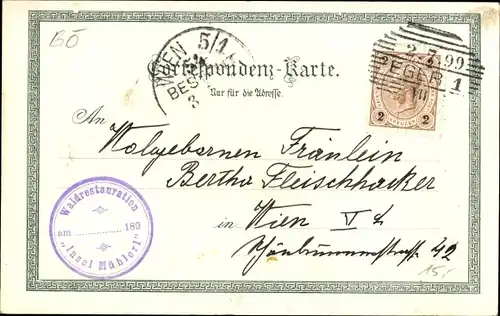 BÖ
WIEN 5/1
BEST
3
2.7.99
EGER 1
2 2
Correspondenz-Karte.
Nur für die Adresse.
An
Wolgebornen Fräulein
Bertha Fleischhacker
in Wien V
Schönbrunnerstraße 42
Waldrestauration
am 189
"Insel Mühlerl"
15,-